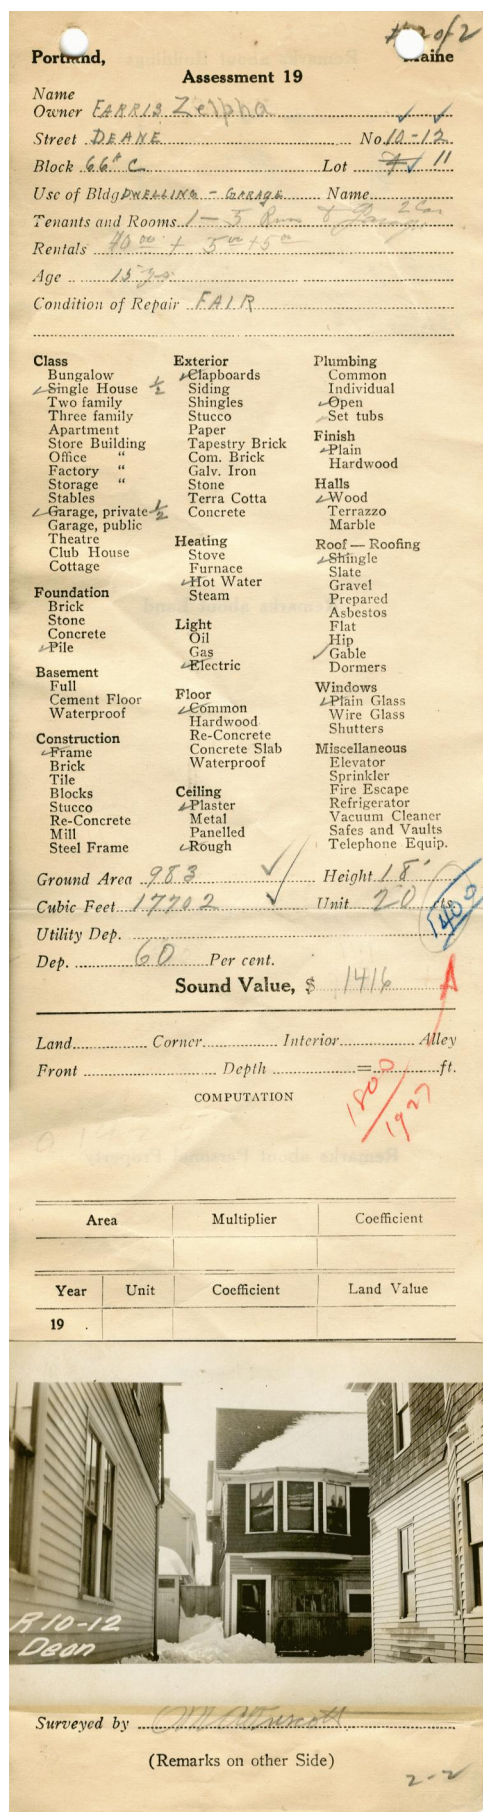 #2 of 2
Portland, Maine
Assessment 19
Name
Owner FARRIS Zelpha
Street DEANE No. 10-12
Block 66A C Lot 11
Use of Bldg DWELLING - GARAGE Name
Tenants and Rooms 1 - 5 Rms & 2 Car Garage
Rentals 40 00 + 5 00 + 5 00
Age 15 yrs.
Condition of Repair FAIR
Class
Bungalow
Single House ½
Two family
Three family
Apartment
Store Building
Office "
Factory "
Storage "
Stables
Garage, private ½
Garage, public
Theatre
Club House
Cottage
Foundation
Brick
Stone
Concrete
Pile
Basement
Full
Cement Floor
Waterproof
Construction
Frame
Brick
Tile
Blocks
Stucco
Re-Concrete
Mill
Steel Frame
Exterior
Clapboards
Siding
Shingles
Stucco
Paper
Tapestry Brick
Com. Brick
Galv. Iron
Stone
Terra Cotta
Concrete
Heating
Stove
Furnace
Hot Water
Steam
Light
Oil
Gas
Electric
Floor
Common
Hardwood
Re-Concrete
Concrete Slab
Waterproof
Ceiling
Plaster
Metal
Panelled
Rough
Plumbing
Common
Individual
Open
Set tubs
Finish
Plain
Hardwood
Halls
Wood
Terrazzo
Marble
Roof — Roofing
Shingle
Slate
Gravel
Prepared
Asbestos
Flat
Hip
Gable
Dormers
Windows
Plain Glass
Wire Glass
Shutters
Miscellaneous
Elevator
Sprinkler
Fire Escape
Refrigerator
Vacuum Cleaner
Safes and Vaults
Telephone Equip.
Ground Area 983 Height 18'
Cubic Feet 17702 Unit 20 cts.
1400
Utility Dep.
Dep. 60 Per cent.
Sound Value, $ 1416
Land Corner Interior Alley
Front Depth = ft.
COMPUTATION
1800
1927
Area Multiplier Coefficient
Year Unit Coefficient Land Value
19 .
R 10-12
Dean
Surveyed by
(Remarks on other Side)
2-2